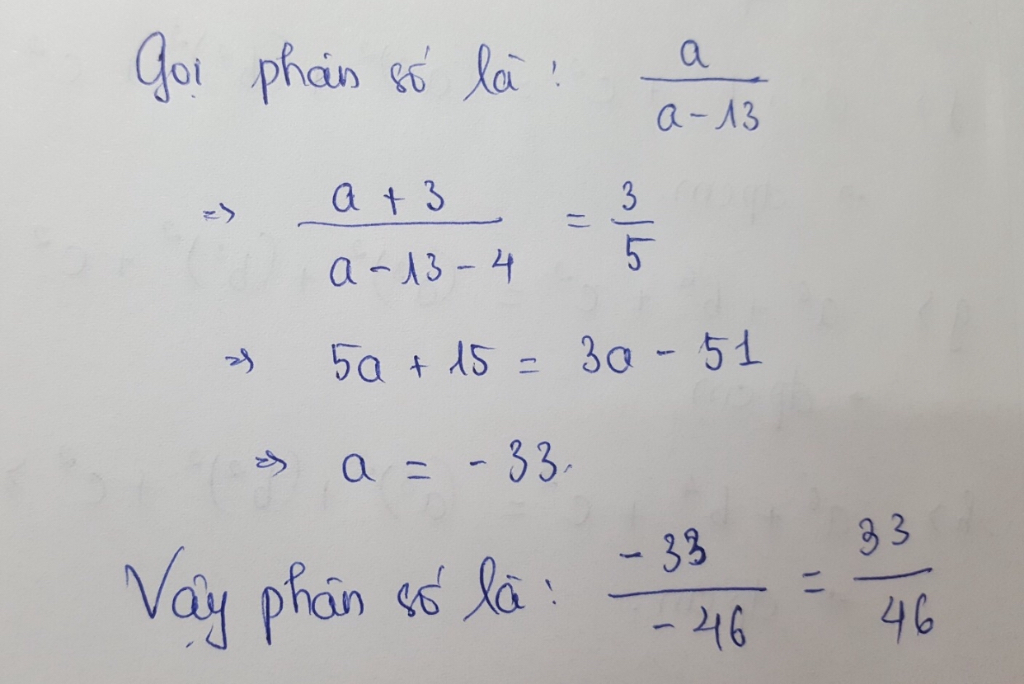 Gọi phân số là: a / a - 13
=> a + 3 / a - 13 - 4 = 3 / 5
=> 5a + 15 = 3a - 51
=> a = - 33.
Vậy phân số là: - 33 / - 46 = 33 / 46